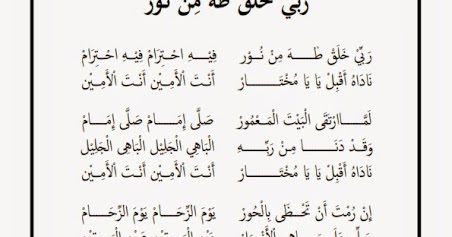 رَبِّيْ خَلَقْ طٰهَ مِنْ نُوْر
رَبِّيْ خَلَقْ طٰـــهَ مِنْ نُـــوْر فِيْـــهِ احْـتِرَامْ فِيْـهِ احْـتِرَامْ
نَادَاهُ أَقْبِلْ يَا يَا مُخْتَـــــــار أَنْـتَ الْأَمِـيْن أَنْـتَ الْأَمِـيْن
لَمَّـــاارْتَقَى الْبَيْتَ الْمَـعْمُوْر صَلَّى إِمَــــامْ صَلَّى إِمَــــامْ
وَقَـدْ دَنَـــــا مِـنْ رَبِّـــــهِ الْبَاهِي الْجَلِيْل الْبَاهِي الْجَلِيْل
نَادَاهُ أَقْبِلْ يَا يَا مُخْتَـــــــار أَنْـتَ الْأَمِـيْن أَنْـتَ الْأَمِـيْن
إِنْ رُمْتَ أَنْ تَحْـظَى بِالْحُوْر يَوْمَ الزِّحَـــامْ يَوْمَ الزِّحَـــامْ